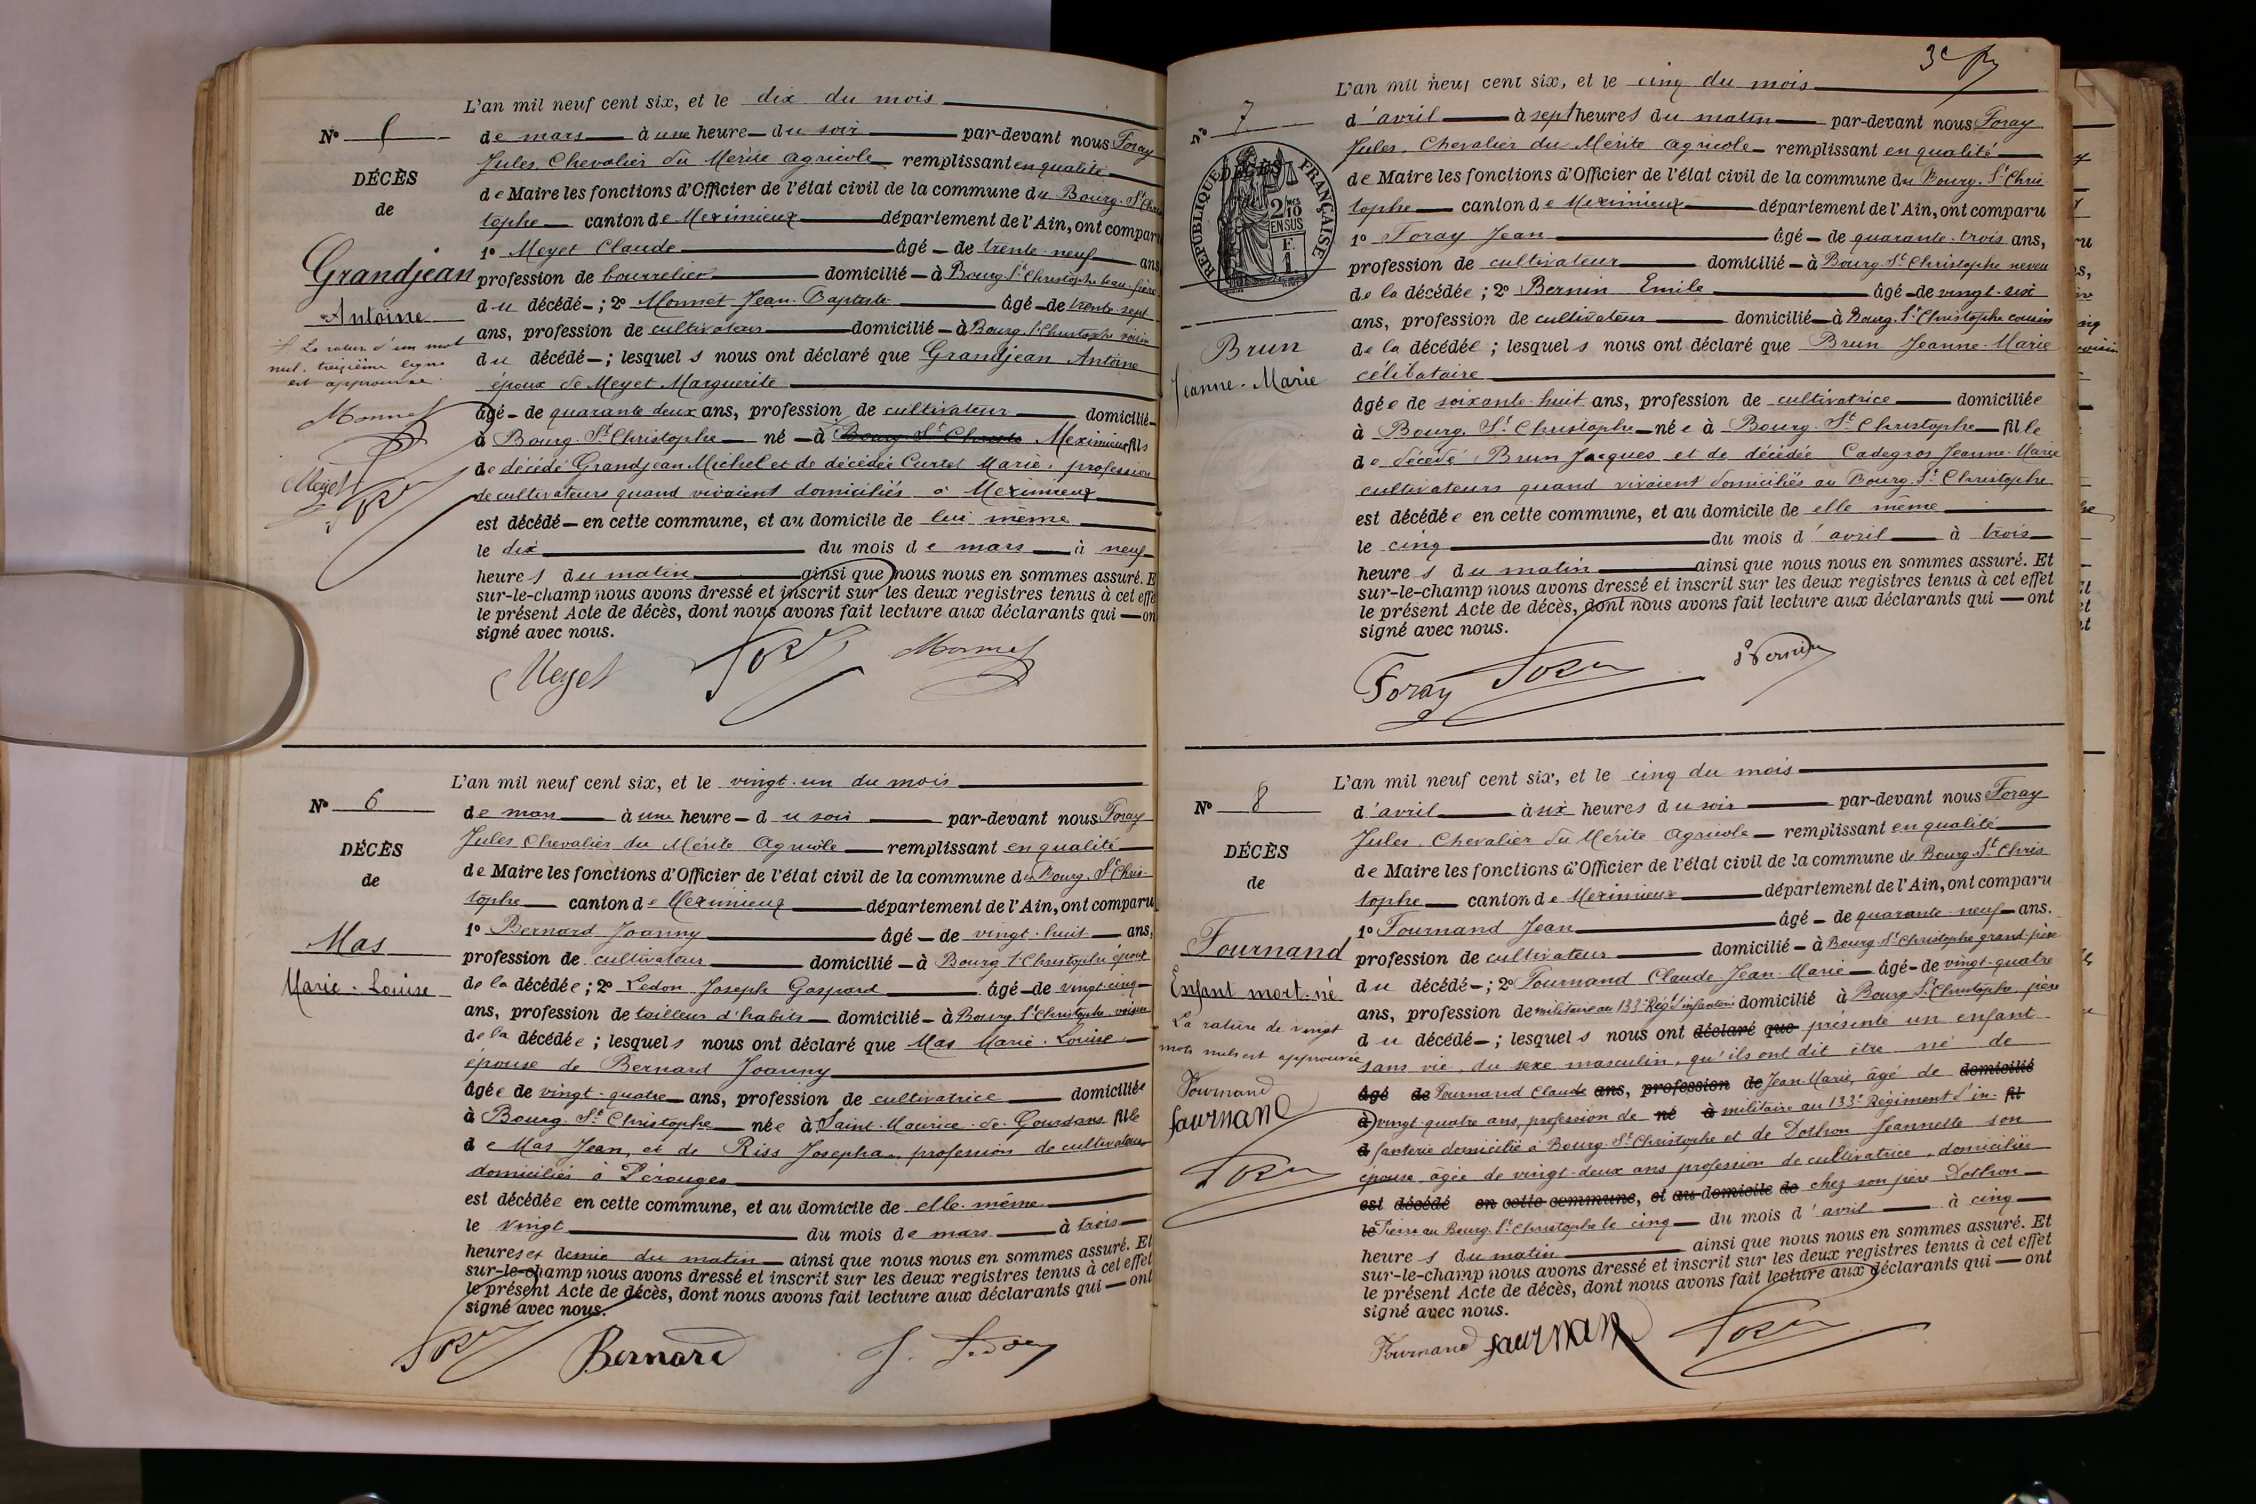 L'an mil neuf cent six, et le dix du mois
N° 5
de mars à une heure du soir par-devant nous Foray
Jules, Chevalier du Mérite agricole remplissant en qualité
DÉCÈS
de Maire les fonctions d'Officier de l'état civil de la commune du Bourg-St Chris
de
tophe canton de Meximieux département de l'Ain, ont comparu
1° Meyet Claude âgé de trente-neuf ans
Grandjean
profession de bourrelier domicilié à Bourg St Christophe beau-frère
du décédé; 2° Monnet Jean-Baptiste âgé de trente-sept
Antoine
ans, profession de cultivateur domicilié à Bourg St Christophe voisin
La rature d'un mot
nul, treizième ligne
est approuvée.
du décédé; lesquels nous ont déclaré que Grandjean Antoine
époux de Meyet Marguerite
âgé de quarante deux ans, profession de cultivateur domicilié
Monnet
à Bourg-St Christophe né à Bourg-St Christo Meximieux fils
de décédé Grandjean Michel et de décédée Curtet Marie, profession
Meyet
Foray
de cultivateurs quand vivaient domiciliés à Meximieux
est décédé en cette commune, et au domicile de lui même
le dix du mois de mars à neuf
heures du matin ainsi que nous nous en sommes assuré. E
sur-le-champ nous avons dressé et inscrit sur les deux registres tenus à cet effe
le présent Acte de décès, dont nous avons fait lecture aux déclarants qui on
signé avec nous.
Meyet Foray Monnet
L'an mil neuf cent six, et le vingt-un du mois
N° 6
de mars à une heure du soir par-devant nous Foray
Jules Chevalier du Mérite Agricole remplissant en qualité
DÉCÈS
de Maire les fonctions d'Officier de l'état civil de la commune du Bourg-St Chris-
de
tophe canton de Meximieux département de l'Ain, ont comparu
1° Bernard Joanny âgé de vingt-huit ans,
Mas
profession de cultivateur domicilié à Bourg St Christophe époux
Marie-Louise
de la décédée; 2° Ledon Joseph Gaspard âgé de vingt-cinq
ans, profession de tailleur d'habits domicilié à Bourg St Christophe voisin
de la décédée; lesquels nous ont déclaré que Mas Marie-Louise
épouse de Bernard Joanny
âgée de vingt-quatre ans, profession de cultivatrice domiciliée
à Bourg-St Christophe née à Saint-Maurice-de-Gourdans fille
de Mas Jean, et de Riss Josepha, profession de cultivateurs
domiciliés à Pérouges
est décédée en cette commune, et au domicile de elle-même
le vingt du mois de mars à trois
heures et demie du matin ainsi que nous nous en sommes assuré. Et
sur-le-champ nous avons dressé et inscrit sur les deux registres tenus à cet effet
le présent Acte de décès, dont nous avons fait lecture aux déclarants qui ont
signé avec nous.
Foray Bernard J. Ledon
3e
L'an mil neuf cent six, et le cinq du mois
N° 7
d'avril à sept heures du matin par-devant nous Foray
Jules, Chevalier du Mérite agricole remplissant en qualité
DÉCÈS
RÉPUBLIQUE FRANÇAISE
2/10 EN SUS
F
1
de Maire les fonctions d'Officier de l'état civil de la commune du Bourg-St Chris
tophe canton de Meximieux département de l'Ain, ont comparu
1° Foray Jean âgé de quarante-trois ans,
profession de cultivateur domicilié à Bourg-St Christophe neveu
de la décédée; 2° Bernin Emile âgé de vingt-six
ans, profession de cultivateur domicilié à Bourg-St Christophe cousin
Brun
de la décédée; lesquels nous ont déclaré que Brun Jeanne-Marie
Jeanne-Marie
célibataire
âgée de soixante-huit ans, profession de cultivatrice domiciliée
à Bourg-St Christophe née à Bourg-St Christophe fille
de décédé Brun Jacques et de décédée Cadegros Jeanne-Marie
cultivateurs quand vivaient domiciliés au Bourg-St Christophe
est décédée en cette commune, et au domicile de elle même
le cinq du mois d'avril à trois
heures du matin ainsi que nous nous en sommes assuré. Et
sur-le-champ nous avons dressé et inscrit sur les deux registres tenus à cet effet
le présent Acte de décès, dont nous avons fait lecture aux déclarants qui ont
signé avec nous.
Foray Foray Bernin
L'an mil neuf cent six, et le cinq du mois
N° 8
d'avril à six heures du soir par-devant nous Foray
Jules, Chevalier du Mérite Agricole remplissant en qualité
DÉCÈS
de Maire les fonctions d'Officier de l'état civil de la commune de Bourg-St Chris
de
tophe canton de Meximieux département de l'Ain, ont comparu
1° Fournand Jean âgé de quarante-neuf ans.
Fournand
profession de cultivateur domicilié à Bourg-St Christophe grand père
Enfant mort-né
du décédé; 2° Fournand Claude-Jean-Marie âgé de vingt-quatre
ans, profession de militaire au 133e Régt d'infanterie domicilié à Bourg St Christophe, père
La rature de vingt
mots nuls est approuvée
du décédé; lesquels nous ont déclaré que présenté un enfant
sans vie, du sexe masculin, qu'ils ont dit être né de
Fournand
âgé de Fournand Claude ans, profession de Jean-Marie, âgé de domicilié
fournand
à vingt quatre ans, profession de né à militaire au 133e Régiment d'in- fil
d fanterie domicilié à Bourg-St Christophe et de Dothron Jeannette son
Foray
épouse, âgée de vingt-deux ans profession de cultivatrice, domiciliée
est décédé en cette commune, et au domicile de chez son père Dothron
le Pierre au Bourg-St Christophe le cinq du mois d'avril à cinq
heures du matin ainsi que nous nous en sommes assuré. Et
sur-le-champ nous avons dressé et inscrit sur les deux registres tenus à cet effet
le présent Acte de décès, dont nous avons fait lecture aux déclarants qui ont
signé avec nous.
Fournand fournand Foray